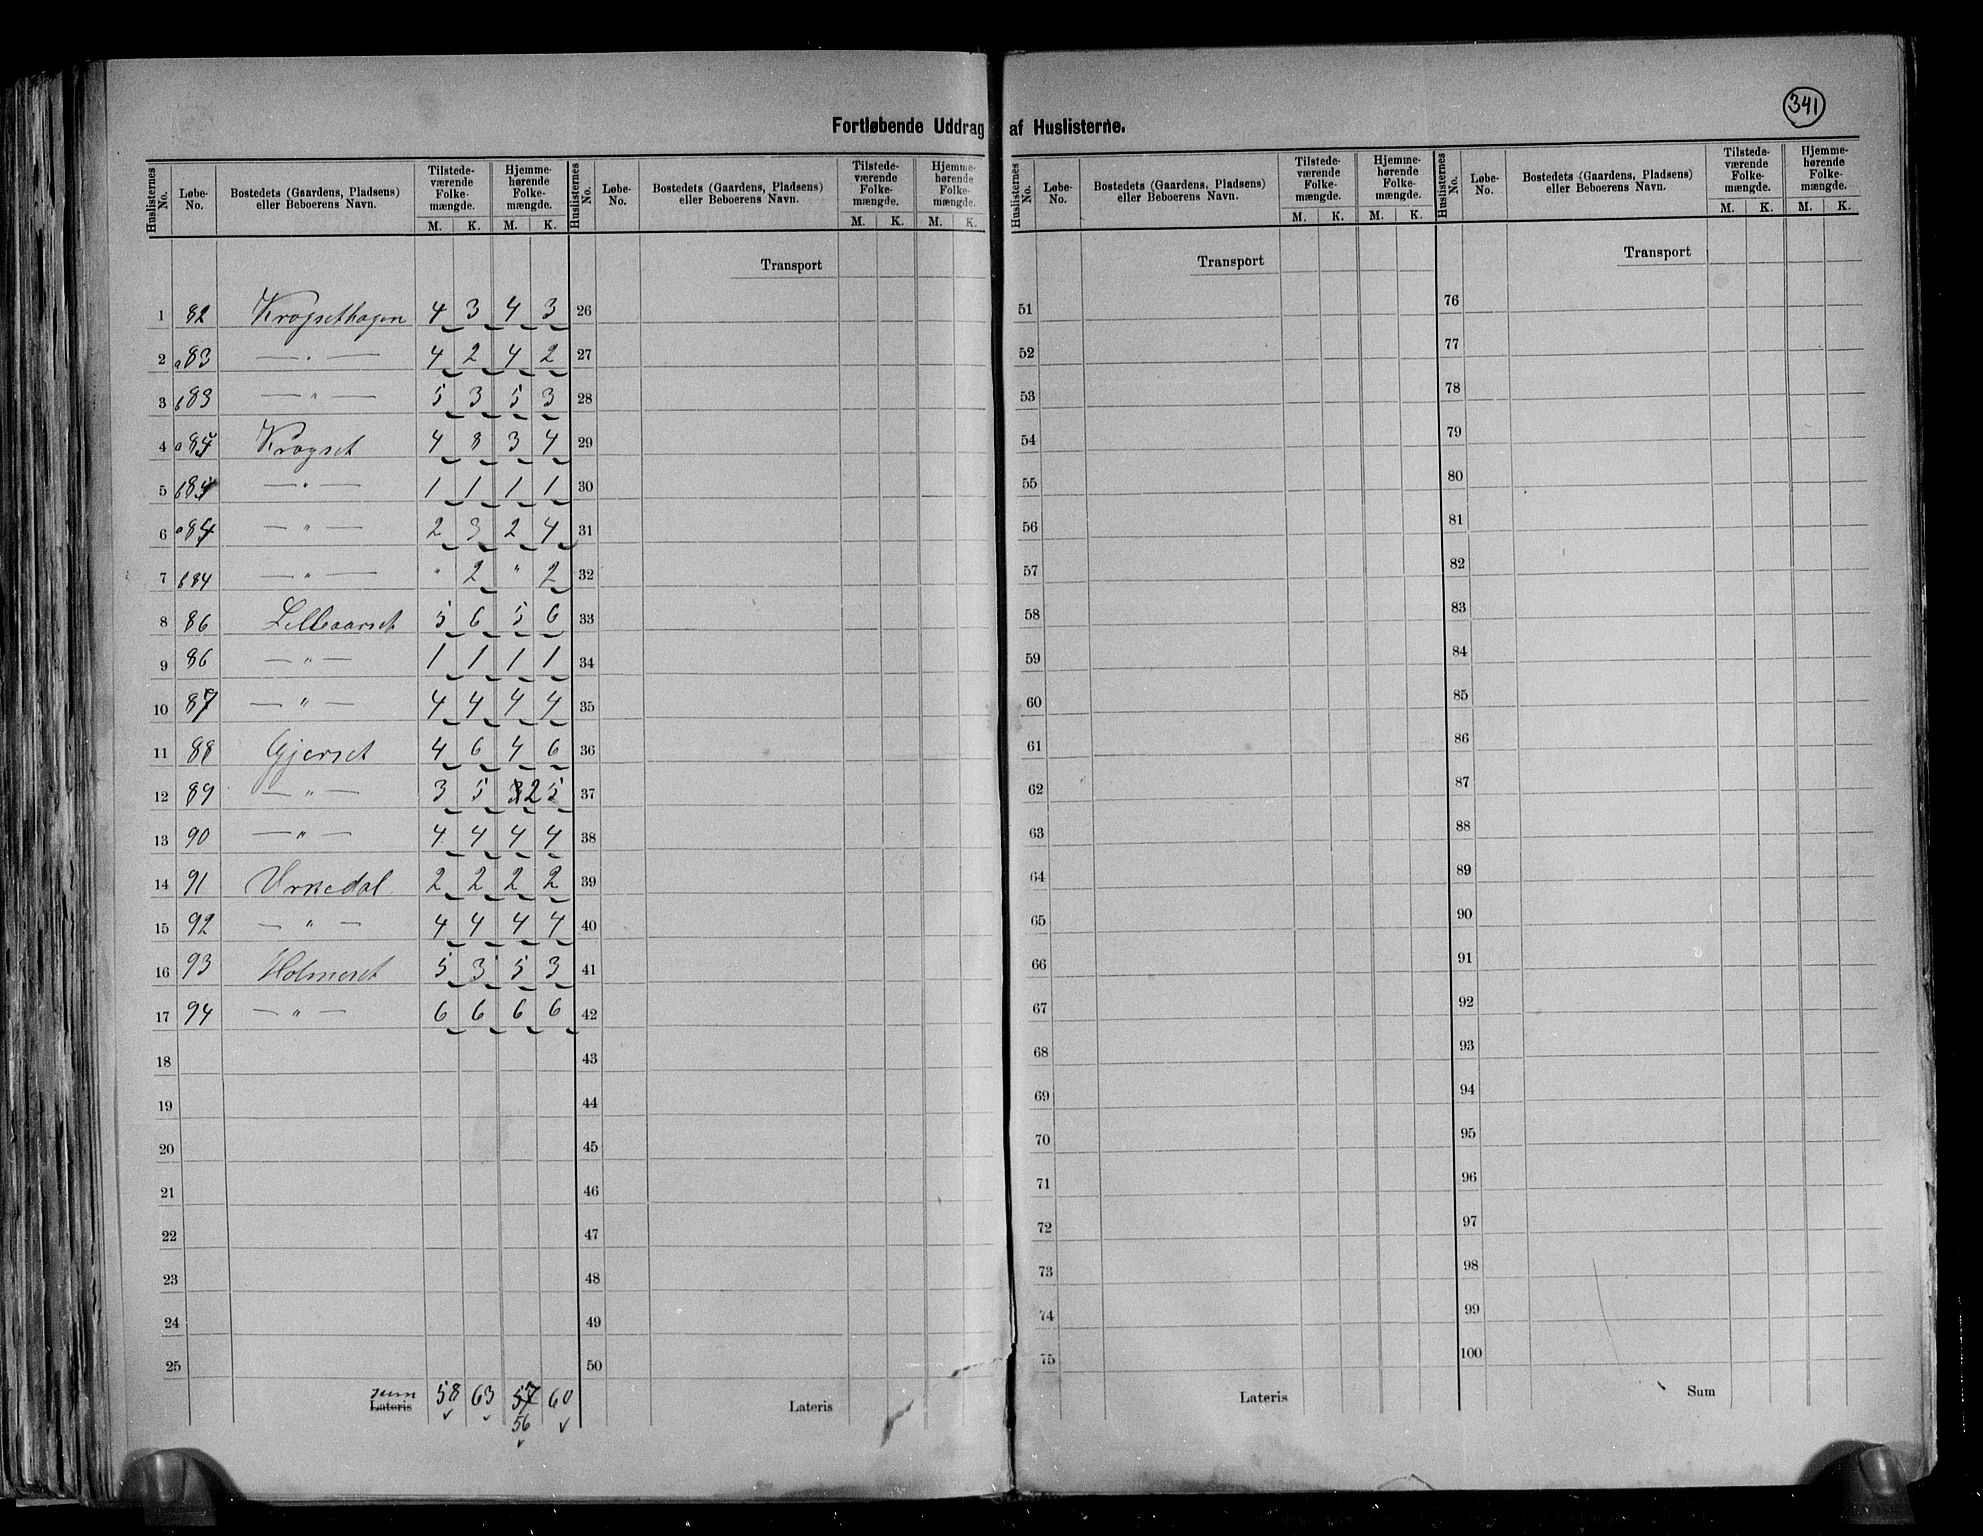 341
Fortløbende Uddrag af Huslisterne.
Huslisternes No. | Løbe-No. | Bostedets (Gaardens, Pladsens) eller Beboerens Navn. | Tilstedeværende Folkemængde. M. K. | Hjemmehørende Folkemængde. M. K.
Huslisternes No. | Løbe-No. | Bostedets (Gaardens, Pladsens) eller Beboerens Navn. | Tilstedeværende Folkemængde. M. K. | Hjemmehørende Folkemængde. M. K.
Huslisternes No. | Løbe-No. | Bostedets (Gaardens, Pladsens) eller Beboerens Navn. | Tilstedeværende Folkemængde. M. K. | Hjemmehørende Folkemængde. M. K.
Huslisternes No. | Løbe-No. | Bostedets (Gaardens, Pladsens) eller Beboerens Navn. | Tilstedeværende Folkemængde. M. K. | Hjemmehørende Folkemængde. M. K.
Transport Transport Transport
1 82 Krogsethagen 4 3 4 3 26 51 76
2 a83 — " — 4 2 4 2 27 52 77
3 b83 — " — 5 3 5 3 28 53 78
4 a84 Krogset 4 8 3 4 29 54 79
5 b84 — " — 1 1 1 1 30 55 80
6 a84 — " — 2 3 2 4 31 56 81
7 b84 — " — " 2 " 2 32 57 82
8 86 Lillaarset 5 6 5 6 33 58 83
9 86 — " — 1 1 1 1 34 59 84
10 87 — " — 4 4 4 4 35 60 85
11 88 Gjerset 4 6 4 6 36 61 86
12 89 — " — 3 5 3 2 5 37 62 87
13 90 — " — 4 4 4 4 38 63 88
14 91 Urkedal 2 2 2 2 39 64 89
15 92 — " — 4 4 4 4 40 65 90
16 93 Holmeset 5 3 5 3 41 66 91
17 94 — " — 6 6 6 6 42 67 92
18 43 68 93
19 44 69 94
20 45 70 95
21 46 71 96
22 47 72 97
23 48 73 98
24 49 74 99
25 50 75 100
sum
Lateris 58 63 57 60 Lateris Lateris Sum
56